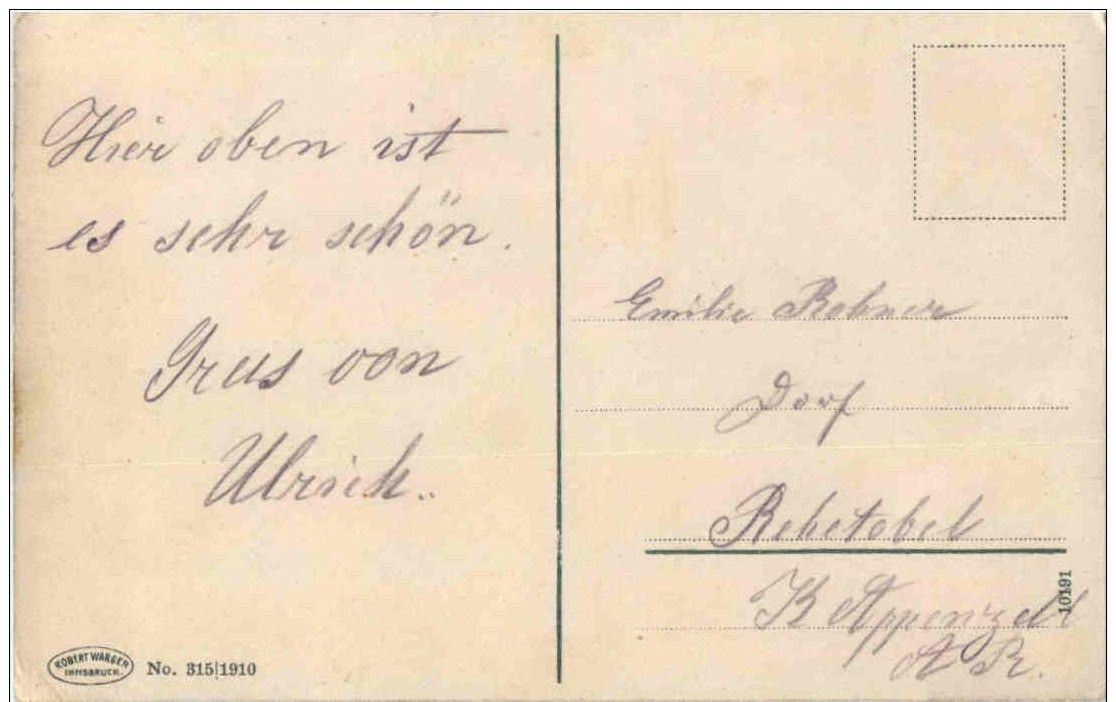 Hier oben ist
es sehr schön.
Grus von
Ulrich..
Emilie Rohner
Dorf
Rehetobel
K Appenzell
A R.
10191
ROBERT WARGER
INNSBRUCK.
No. 315|1910